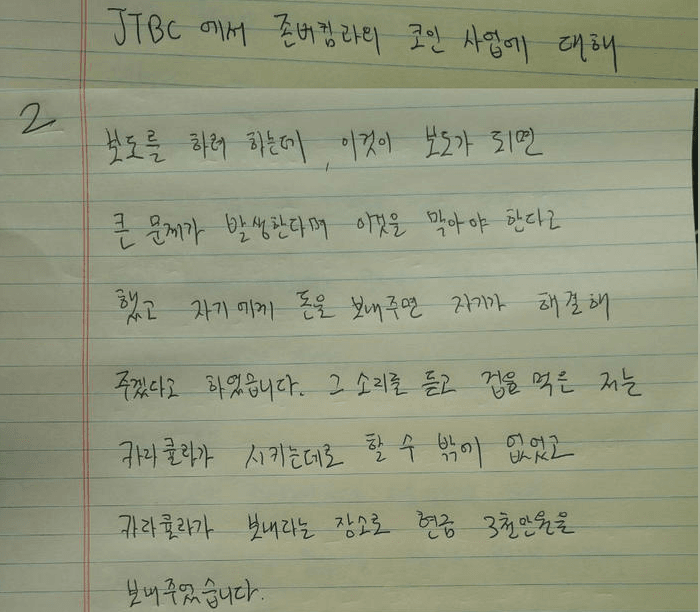 JTBC 에서 존버킴과의 코인 사업에 대해
2
보도를 하려 하는데, 이것이 보도가 되면
큰 문제가 발생한다며 이것을 막아야 한다고
했고 자기에게 돈을 보내주면 자기가 해결해
주겠다고 하였습니다. 그 소리를 듣고 겁을 먹은 저는
카라큘라가 시키는데로 할 수 밖에 없었고
카라큘라가 보내라는 장소로 현금 3천만원을
보내주었습니다.